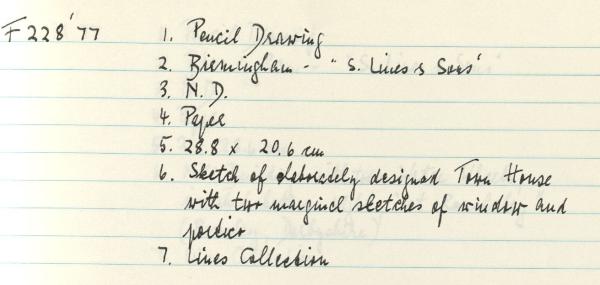 F 228'77 1. Pencil Drawing
2. Birmingham - "S. Lines & Sons'
3. N.D.
4. Paper
5. 28.8 x 20.6 cm
6. Sketch of elaborately designed Town House
with two marginal sketches of window and
portico
7. Lines Collection